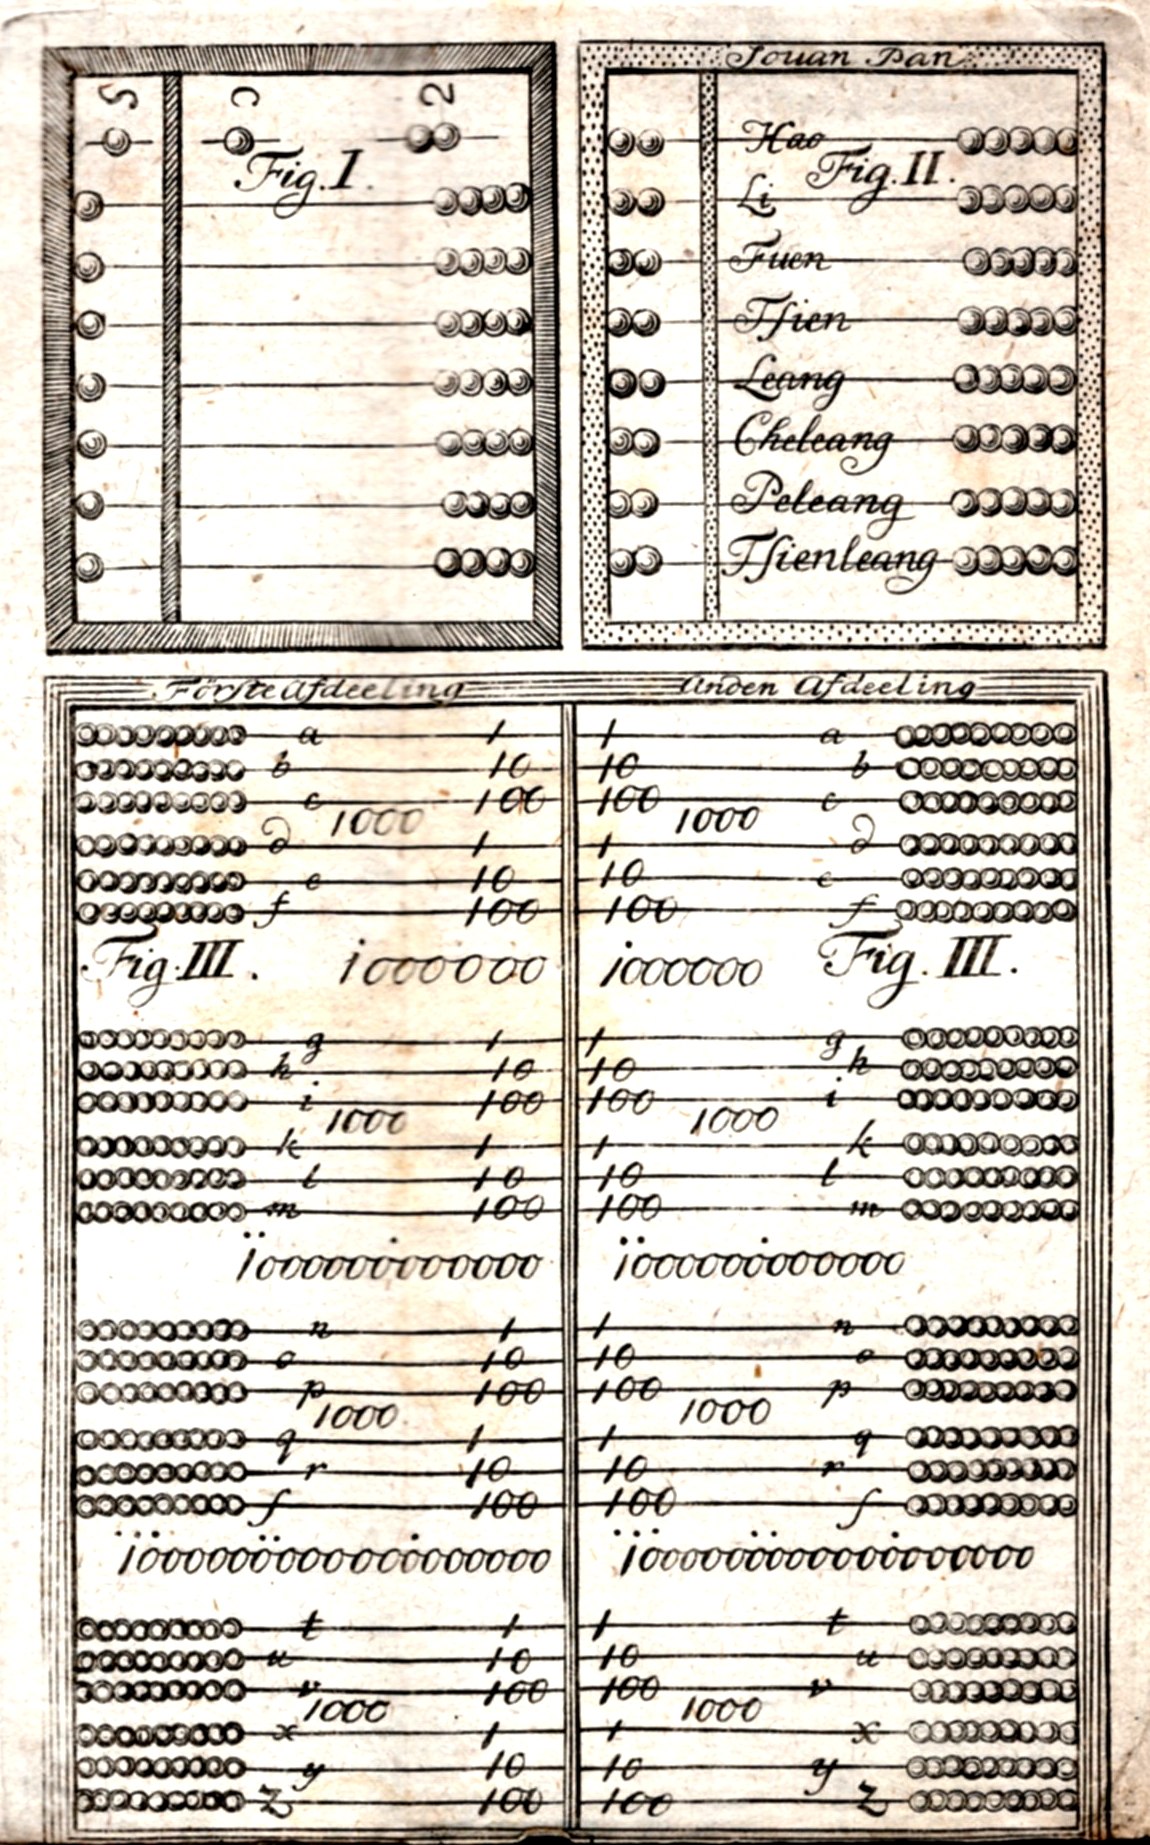 Fig. I.
Souan Pan
Hao
Fig. II.
Li
Fuen
Tſien
Leang
Cheleang
Peleang
Tſienleang
Förste Afdeeling
Anden Afdeeling
a 1 1 a
b 10 10 b
c 100 100 c
1000 1000
d 1 1 d
e 10 10 e
f 100 100 f
Fig. III. 1000000 1000000 Fig. III.
g 1 1 g
h 10 10 h
i 100 100 i
1000 1000
k 1 1 k
l 10 10 l
m 100 100 m
n 1 1 n
o 10 10 o
p 100 100 p
1000 1000
q 1 1 q
r 10 10 r
ſ 100 100 ſ
t 1 1 t
u 10 10 u
v 100 100 v
1000 1000
x 1 1 x
y 10 10 y
z 100 100 z